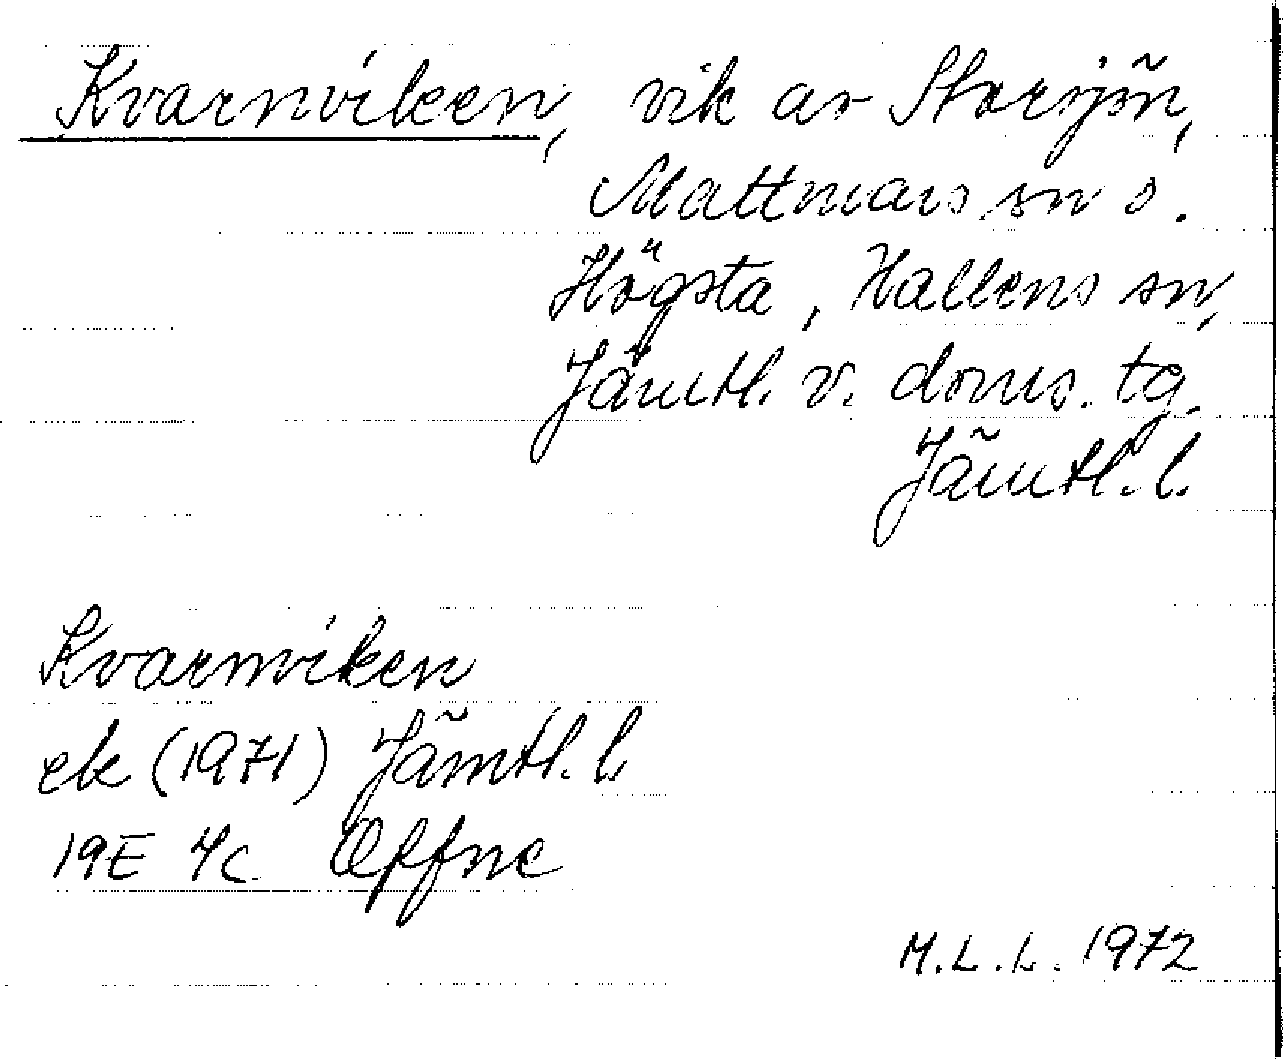 Kvarnviken, vik av Storsjön,
Mattmars sn o.
Högsta, Hallens sn,
Jämtl. v. doms. tg.
Jämtl. l.
Kvarnviken
ek (1971) Jämtl. l.
19E 4c Offne
M.L.L. 1972